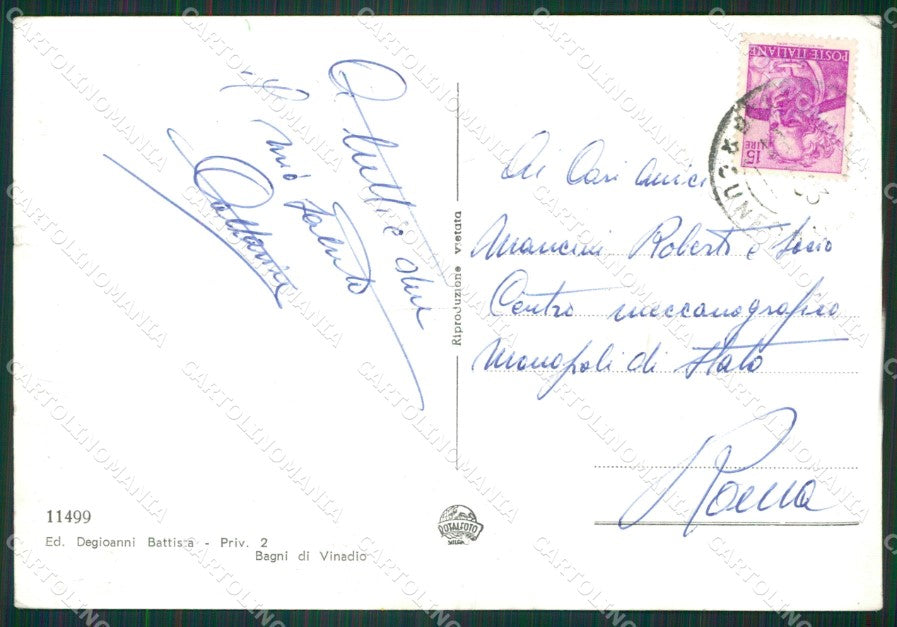 A tutti e due
il mio
saluto
Ai Cari amici
Mancini Roberto e Socio
Centro meccanografico
Monopoli di Stato
Roma
Riproduzione vietata
POSTE ITALIANE
15
LIRE
CUNE
11499
Ed. Degioanni Battista - Priv. 2
Bagni di Vinadio
ROTALFOTO
MILANO
CARTOLINOMANIA